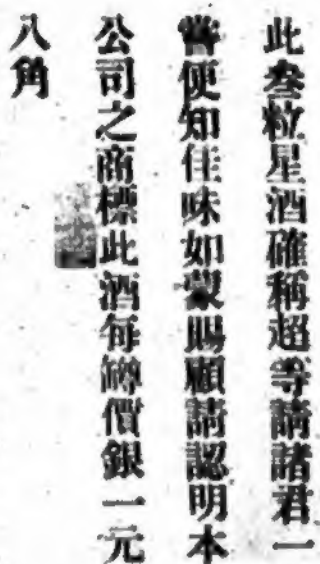 此叄粒星酒確稱超等請諸君一
嘗便知佳味如蒙賜顧請認明本
公司之商標此酒每罇價銀一元
八角